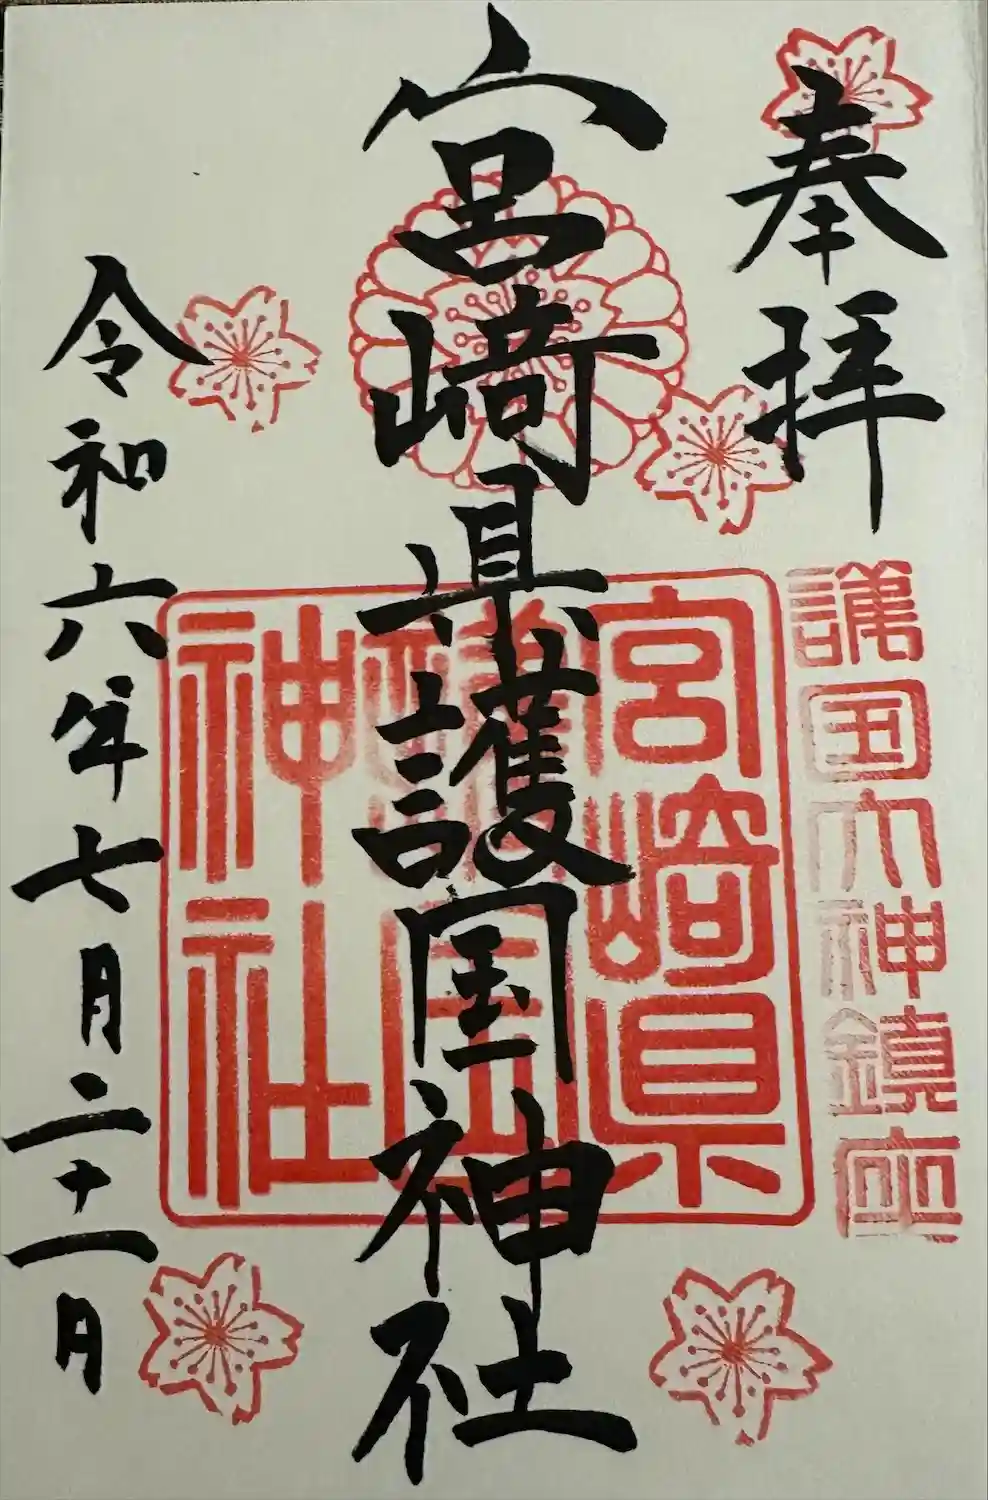 奉拝
護国大神鎮座
宮﨑県護国神社
宮崎県
護国
神社
令和六年七月二十一日